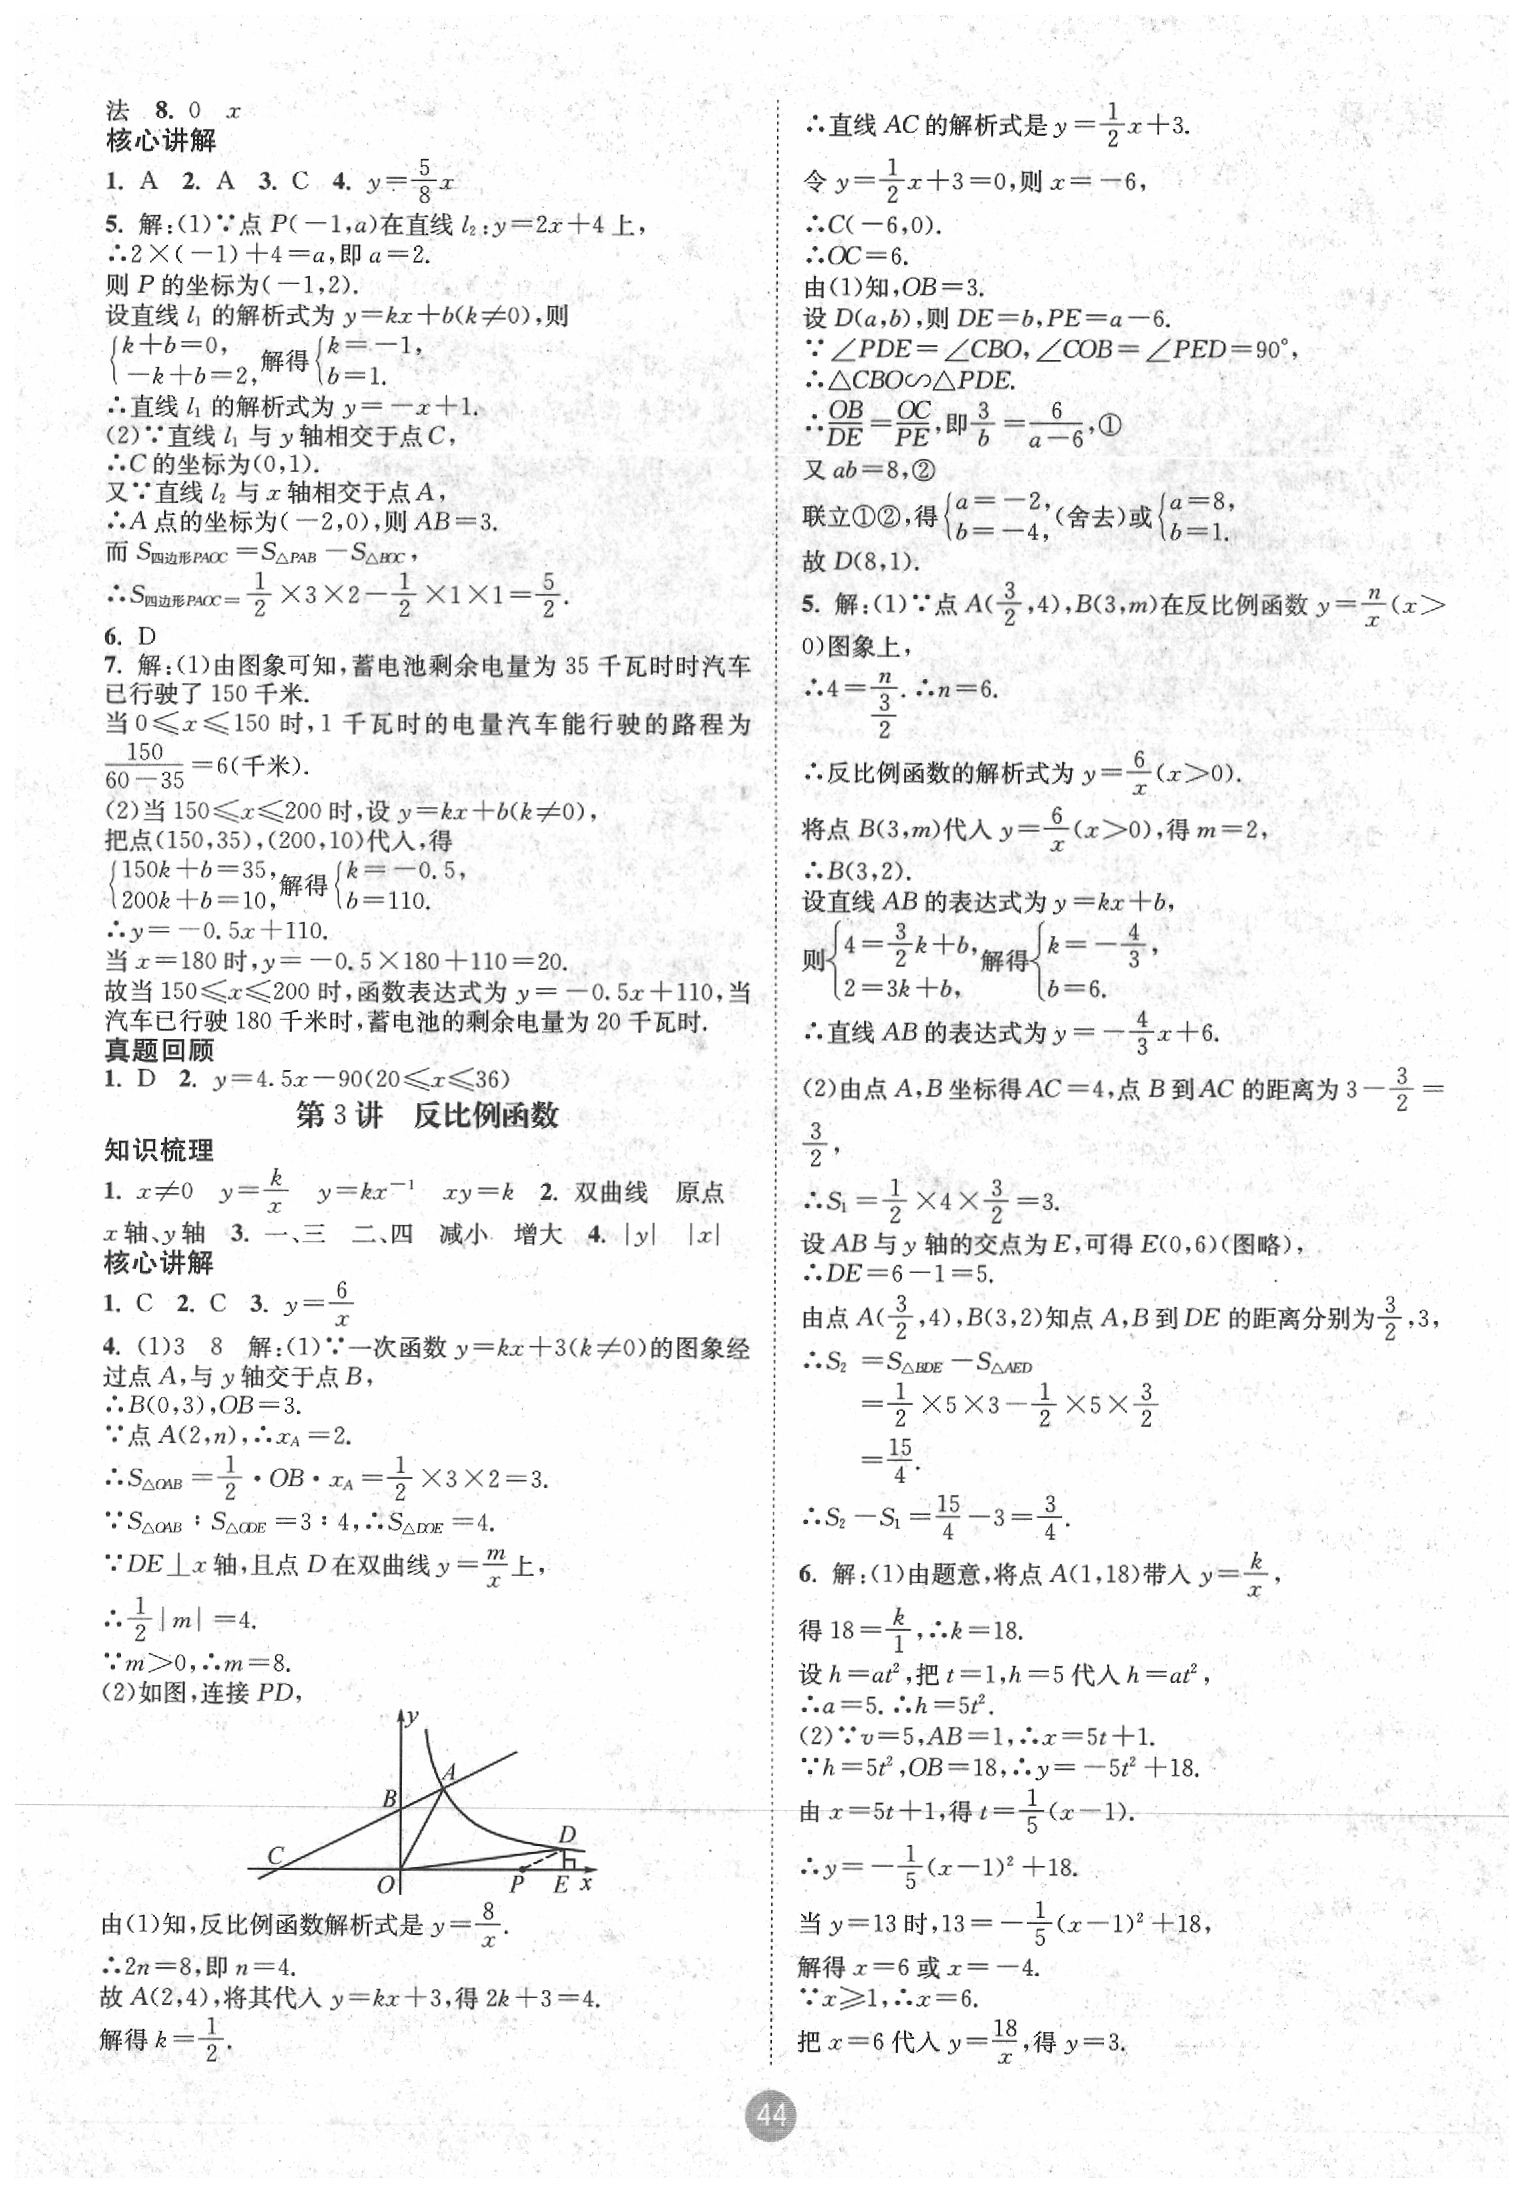 法 8. 0 x
核心讲解
1. A 2. A 3. C 4. y=5/8x
5. 解:(1)∵点 P(-1,a)在直线 l₂:y=2x+4 上,
∴2×(-1)+4=a,即 a=2.
则 P 的坐标为(-1,2).
设直线 l₁ 的解析式为 y=kx+b(k≠0),则
{k+b=0, -k+b=2, 解得 {k=-1, b=1.
∴直线 l₁ 的解析式为 y=-x+1.
(2)∵直线 l₁ 与 y 轴相交于点 C,
∴C 的坐标为(0,1).
又∵直线 l₂ 与 x 轴相交于点 A,
∴A 点的坐标为(-2,0),则 AB=3.
而 S四边形PAOC=S△PAB-S△BOC,
∴S四边形PAOC=1/2×3×2-1/2×1×1=5/2.
6. D
7. 解:(1)由图象可知,蓄电池剩余电量为 35 千瓦时时汽车
已行驶了 150 千米.
当 0≤x≤150 时,1 千瓦时的电量汽车能行驶的路程为
150/(60-35)=6(千米).
(2)当 150≤x≤200 时,设 y=kx+b(k≠0),
把点(150,35),(200,10)代入,得
{150k+b=35, 200k+b=10, 解得 {k=-0.5, b=110.
∴y=-0.5x+110.
当 x=180 时,y=-0.5×180+110=20.
故当 150≤x≤200 时,函数表达式为 y=-0.5x+110,当
汽车已行驶 180 千米时,蓄电池的剩余电量为 20 千瓦时.
真题回顾
1. D 2. y=4.5x-90(20≤x≤36)
第 3 讲 反比例函数
知识梳理
1. x≠0 y=k/x y=kx⁻¹ xy=k 2. 双曲线 原点
x 轴、y 轴 3. 一、三 二、四 减小 增大 4. |y| |x|
核心讲解
1. C 2. C 3. y=6/x
4. (1)3 8 解:(1)∵一次函数 y=kx+3(k≠0)的图象经
过点 A,与 y 轴交于点 B,
∴B(0,3),OB=3.
∵点 A(2,n),∴x_A=2.
∴S△OAB=1/2·OB·x_A=1/2×3×2=3.
∵S△OAB:S△ODE=3:4,∴S△DOE=4.
∵DE⊥x 轴,且点 D 在双曲线 y=m/x上,
∴1/2|m|=4.
∵m>0,∴m=8.
(2)如图,连接 PD,
y
A
B
D
C
O
P
E
x
由(1)知,反比例函数解析式是 y=8/x.
∴2n=8,即 n=4.
故 A(2,4),将其代入 y=kx+3,得 2k+3=4.
解得 k=1/2.
∴直线 AC 的解析式是 y=1/2x+3.
令 y=1/2x+3=0,则 x=-6,
∴C(-6,0).
∴OC=6.
由(1)知,OB=3.
设 D(a,b),则 DE=b,PE=a-6.
∵∠PDE=∠CBO,∠COB=∠PED=90°,
∴△CBO∽△PDE.
∴OB/DE=OC/PE,即3/b=6/(a-6),①
又 ab=8,②
联立①②,得{a=-2, b=-4,(舍去)或{a=8, b=1.
故 D(8,1).
5. 解:(1)∵点 A(3/2,4),B(3,m)在反比例函数 y=n/x(x>
0)图象上,
∴4=n/(3/2).∴n=6.
∴反比例函数的解析式为 y=6/x(x>0).
将点 B(3,m)代入 y=6/x(x>0),得 m=2,
∴B(3,2).
设直线 AB 的表达式为 y=kx+b,
则{4=3/2k+b, 2=3k+b, 解得{k=-4/3, b=6.
∴直线 AB 的表达式为 y=-4/3x+6.
(2)由点 A,B 坐标得 AC=4,点 B 到 AC 的距离为 3-3/2=
3/2,
∴S₁=1/2×4×3/2=3.
设 AB 与 y 轴的交点为 E,可得 E(0,6)(图略),
∴DE=6-1=5.
由点 A(3/2,4),B(3,2)知点 A,B 到 DE 的距离分别为3/2,3,
∴S₂=S△BDE-S△AED
=1/2×5×3-1/2×5×3/2
=15/4.
∴S₂-S₁=15/4-3=3/4.
6. 解:(1)由题意,将点 A(1,18)带入 y=k/x,
得 18=k/1,∴k=18.
设 h=at²,把 t=1,h=5 代入 h=at²,
∴a=5.∴h=5t².
(2)∵v=5,AB=1,∴x=5t+1.
∵h=5t²,OB=18,∴y=-5t²+18.
由 x=5t+1,得 t=1/5(x-1).
∴y=-1/5(x-1)²+18.
当 y=13 时,13=-1/5(x-1)²+18,
解得 x=6 或 x=-4.
∵x≥1,∴x=6.
把 x=6 代入 y=18/x,得 y=3.
44